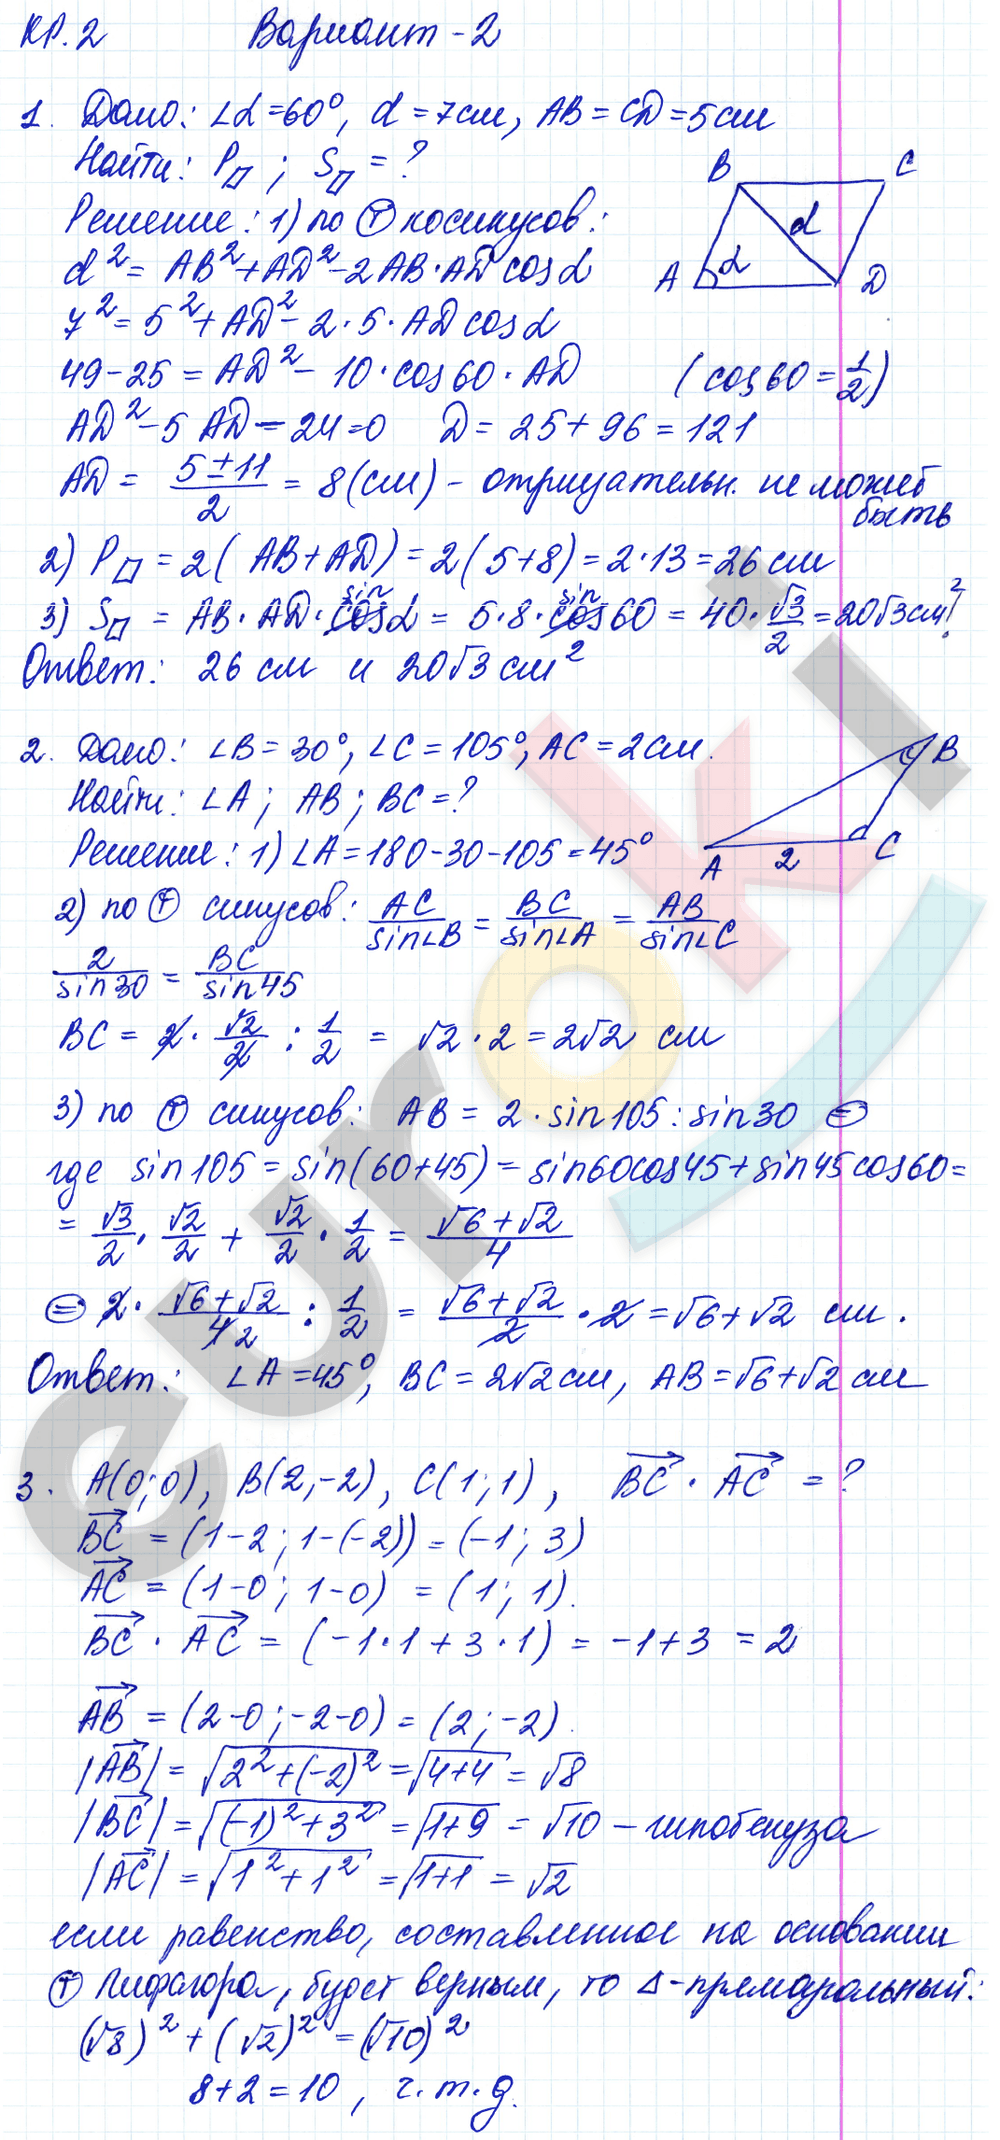 КР.2 Вариант - 2
1. Дано: ∠α = 60°, d = 7 см, AB = CD = 5 см
Найти: P▱ ; S▱ = ?
B C
Решение: 1) по Ⓣ косинусов:
d
d² = AB² + AD² - 2 AB · AD cos α
A α D
7² = 5² + AD² - 2 · 5 · AD cos α
49 - 25 = AD² - 10 · cos 60 · AD (cos 60 = 1/2)
AD² - 5 AD - 24 = 0 D = 25 + 96 = 121
AD = (5 ± 11)/2 = 8 (см) - отрицательн. не может
быть
2) P▱ = 2( AB + AD) = 2( 5 + 8) = 2 · 13 = 26 см
3) S▱ = AB · AD · sin α = 5 · 8 · sin 60 = 40 · √3/2 = 20√3 см²
Ответ: 26 см и 20√3 см²
2. Дано: ∠B = 30°, ∠C = 105°, AC = 2 см.
B
Найти: ∠A ; AB ; BC = ?
Решение: 1) ∠A = 180 - 30 - 105 = 45°
A 2 C
2) по Ⓣ синусов: AC/sin∠B = BC/sin∠A = AB/sin∠C
2/sin 30 = BC/sin 45
BC = 2 · √2/2 : 1/2 = √2 · 2 = 2√2 см
3) по Ⓣ синусов: AB = 2 · sin 105 : sin 30 ⊜
где sin 105 = sin(60 + 45) = sin 60 cos 45 + sin 45 cos 60 =
= √3/2 · √2/2 + √2/2 · 1/2 = (√6 + √2)/4
⊜ 2 · (√6 + √2)/4 2 : 1/2 = (√6 + √2)/2 · 2 = √6 + √2 см .
Ответ: ∠A = 45°, BC = 2√2 см, AB = √6 + √2 см
3. A(0; 0), B(2; -2), C(1; 1), BC · AC = ?
BC = (1 - 2; 1 - (-2)) = (-1; 3)
AC = (1 - 0; 1 - 0) = (1; 1).
BC · AC = (-1 · 1 + 3 · 1) = -1 + 3 = 2
AB = (2 - 0; -2 - 0) = (2; -2).
|AB| = √(2² + (-2)²) = √(4 + 4) = √8
|BC| = √((-1)² + 3²) = √(1 + 9) = √10 - гипотенуза
|AC| = √(1² + 1²) = √(1 + 1) = √2
если равенство, составленное на основании
Ⓣ Пифагора, будет верным, то Δ - прямоугольный:
(√8)² + (√2)² = (√10)²
8 + 2 = 10 , ч.т.д.
euroki